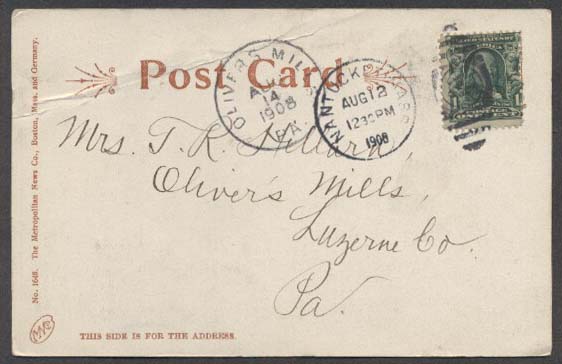 Post Card
OLIVERS MILLS
AUG
14
1908
PA.
NANTUCKET MASS
AUG 12
12 30 PM
1908
Mrs. T. R. Hillard,
Oliver's Mills,
Luzerne Co.
Pa.
No. 1646. The Metropolitan News Co., Boston, Mass. and Germany.
THIS SIDE IS FOR THE ADDRESS.